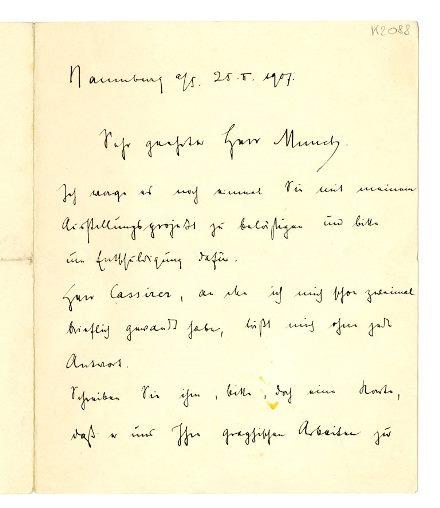 K2088
Naumburg a/S. 25.5.1907.
Sehr geehrter Herr Munch.
Ich wage es noch einmal Sie mit meinem
Ausstellungsprojekt zu belästigen und bitte
um Entschuldigung dafür.
Herr Cassirer, an den ich mich schon zweimal
brieflich gewandt habe, läßt mich ohne jede
Antwort.
Schreiben Sie ihm, bitte, doch eine Karte,
daß er uns Ihre graphischen Arbeiten zu